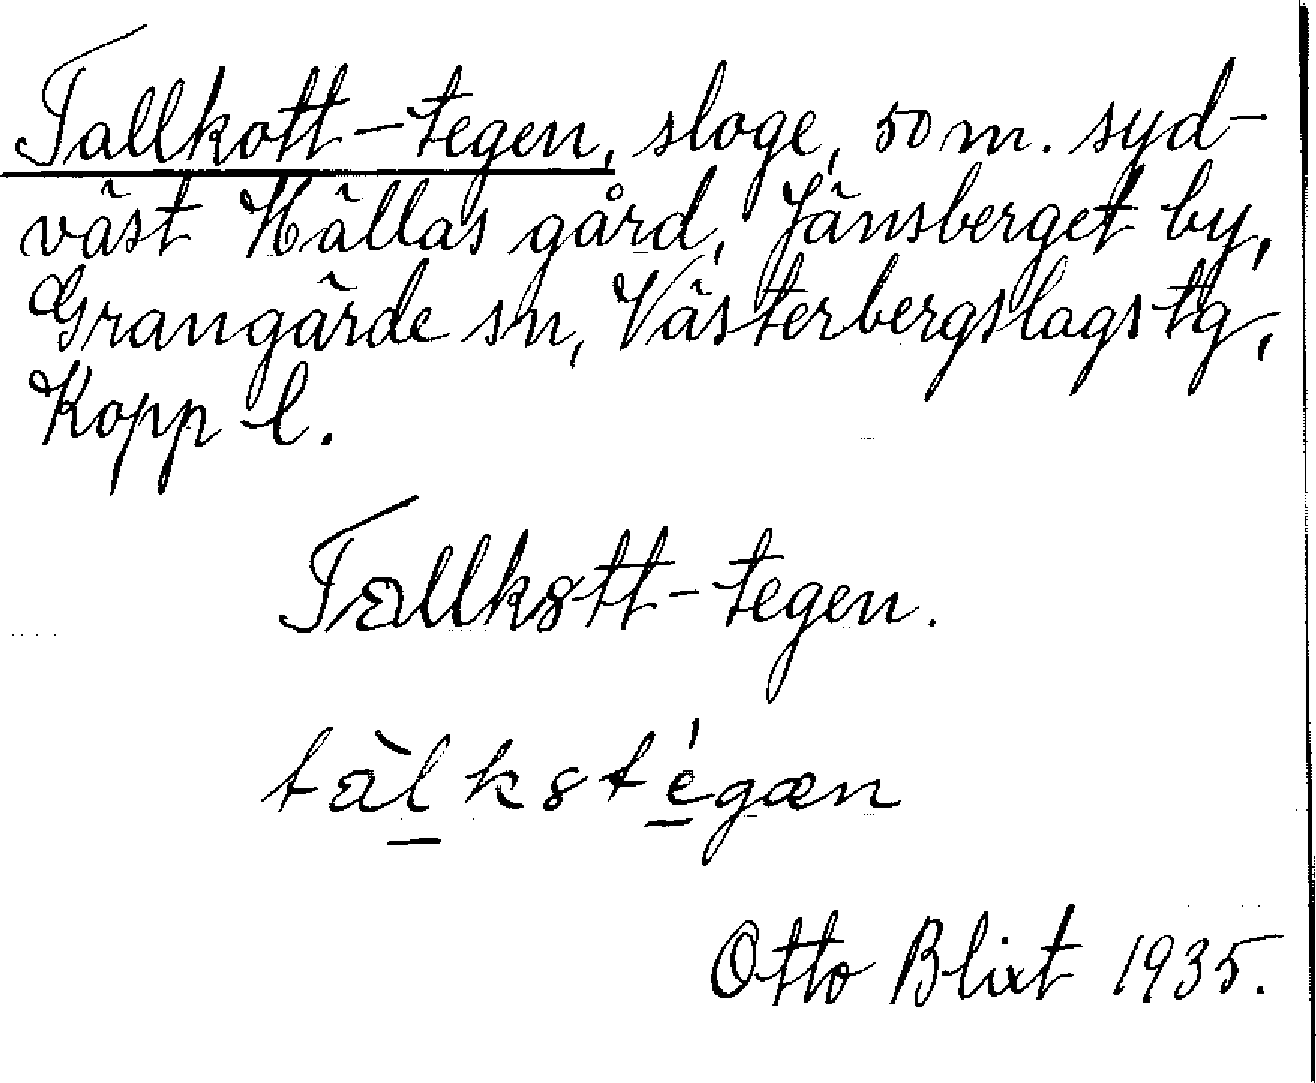 Tallkott-tegen, sloge, 50 m. syd-
väst Hällas gård, Jänsberget by,
Grangärde sn, Västerbergslags tg,
Kopp l.
Tallkott-tegen.
tàlk8tégæn
Otto Blixt 1935.